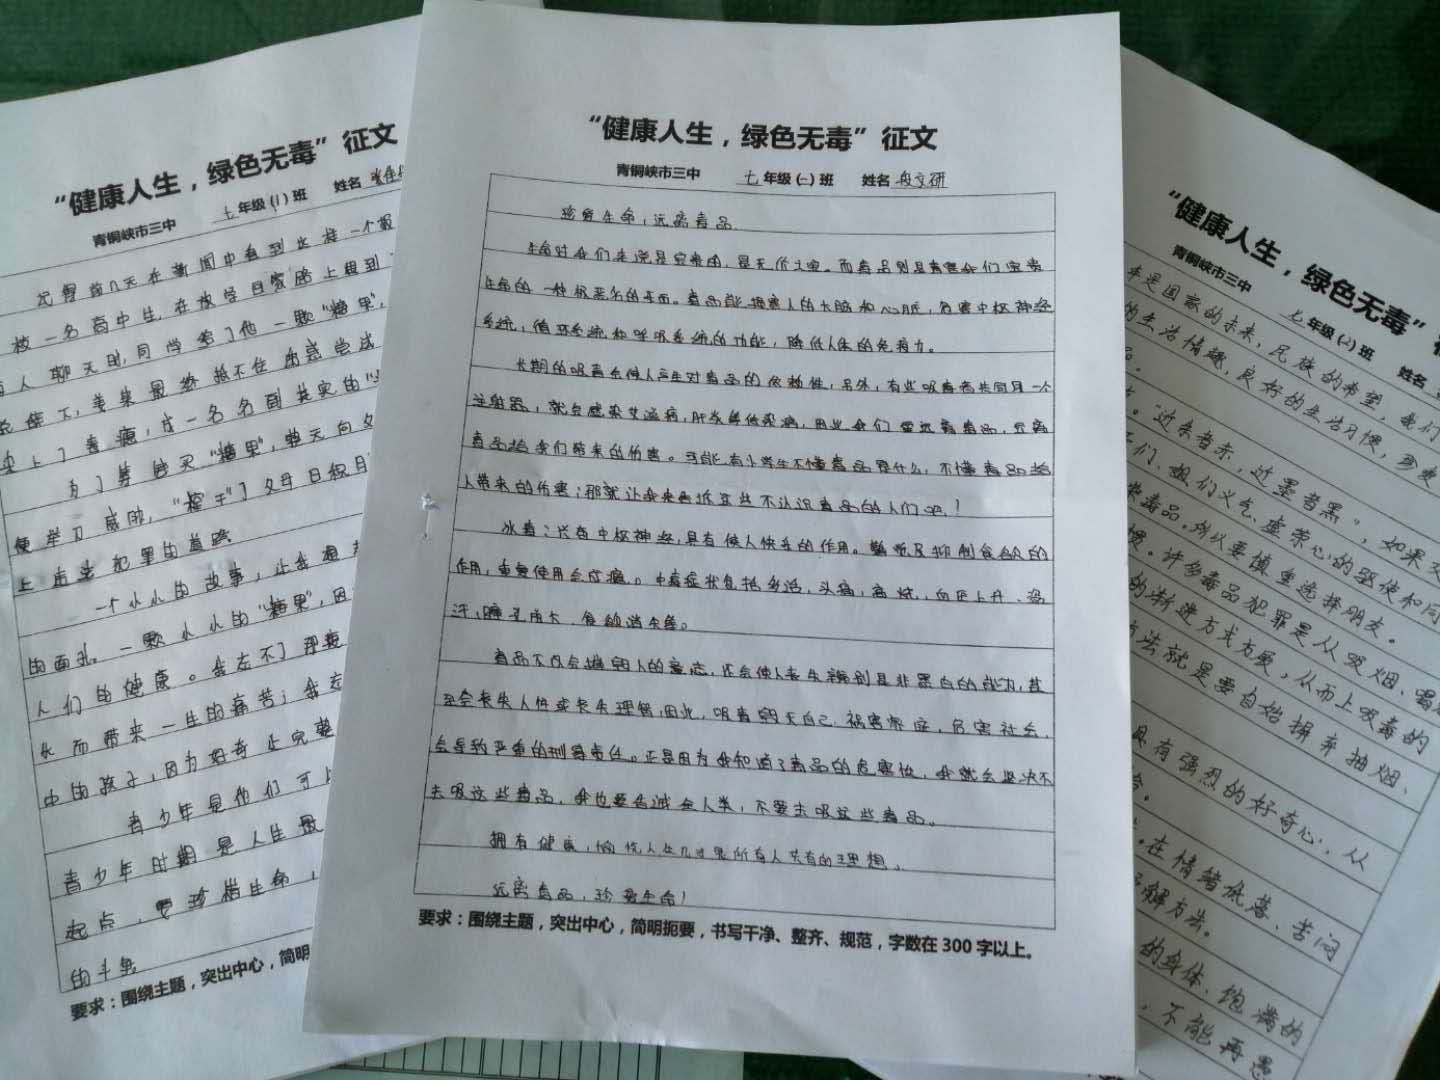 “健康人生，绿色无毒”征文
青铜峡市三中 七年级(1)班 姓名
前几天在新闻中看到这样一个报
被一名高中生，在放学回家路上遇到
人聊天时，同学给了他一颗“糖果”，
上了毒瘾，成一名名副其实的
为了筹钱买“糖果”，整天向父
便学习威胁，“榨干”了父母日积月
上
犯罪的道路
一个小小的故事，让我想
的面孔。一颗小小的“糖果”，因
人们的健康。我左不了那些
长而带来一生的痛苦；我左
中的孩子，因为好奇让完整
青少年是他们可
青少年时期是人生最
起点，要珍惜生命，
的斗争
要求：围绕主题，突出中心，简明
“健康人生，绿色无毒”征文
青铜峡市三中 七年级(二)班 姓名
珍爱生命，远离毒品
生命对我们来说是宝贵的，是无价之宝。而毒品则是毒害我们宝贵
生命的一种极恶劣的东西。毒品能损害人的大脑和心脏，危害中枢神经
系统，循环系统和呼吸系统的功能，降低人体的免疫力。
长期的吸毒会使人产生对毒品的依赖性，另外，有些吸毒者共同用一个
注射器，就会感染艾滋病，肝炎等传染病，因此我们要远离毒品，远离
毒品给我们带来的伤害。可能有小学生不懂毒品是什么，不懂毒品给
人带来的伤害；那就让我来告诉这些不认识毒品的人们吧！
冰毒：兴奋中枢神经，具有使人快乐的作用。警觉及抑制食欲的
作用，重复使用会成瘾。中毒症状包括多话，头痛，高烧，血压上升、盗
汗，瞳孔放大，食欲消失等。
毒品不仅会摧毁人的意志，还会使人丧失辨别是非黑白的能力，甚
至会丧失人性或丧失理智，因此，吸毒毁灭自己，祸害家庭，危害社会，
会导致严重的刑事责任。正是因为我知道了毒品的危害性，我就会坚决不
去吸这些毒品，我也要告诫全人类，不要去吸这些毒品。
拥有健康，愉悦人生几时是所有人共有的理想，
远离毒品，珍爱生命！
要求：围绕主题，突出中心，简明扼要，书写干净、整齐、规范，字数在 300 字以上。
“健康人生，绿色无毒”
青铜峡市三中 七年级(2)班 姓名
年是国家的未来，民族的希望，我们
的生活情趣，良好的生活习惯，珍爱
品。
“近朱者赤，近墨者黑”，如果交
们、姐们义气、虚荣心的驱使和同
毒品。所以要慎重选择朋友。
惯。许多毒品犯罪是从吸烟、喝
的渐进方式发展，从而上吸毒的
方法就是要自始摒弃抽烟、
具有强烈的好奇心，从
。在情绪低落、苦闷
解方法。
的身体、饱满的
，不能再愚